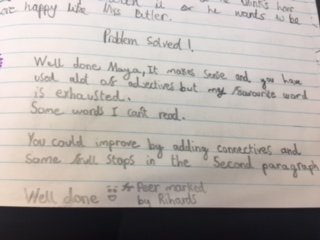 are happy like Miss Butler.
Problem Solved!
Well done Maya, It makes sense and you have
used ald of adjectives but my favourite word
is exhausted.
Some words I can't read.
You could improve by adding connectives and
some full stops in the second paragraph
Well done Peer marked
by Rihards